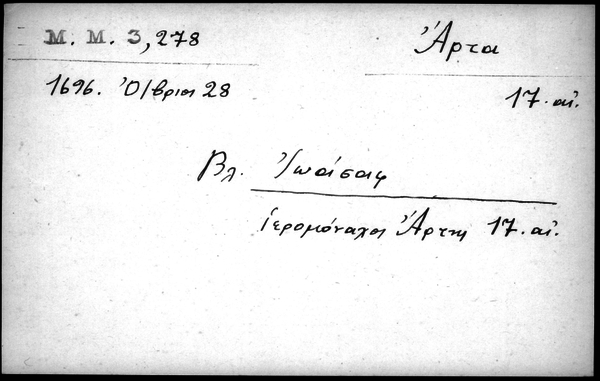 Μ. Μ. 3,278
Ἄρτα
1696. Ὀ/βριος 28
17. αἰ.
Βλ. Ἰωάσαφ
ἱερομόναχος Ἄρτης 17. αἰ.